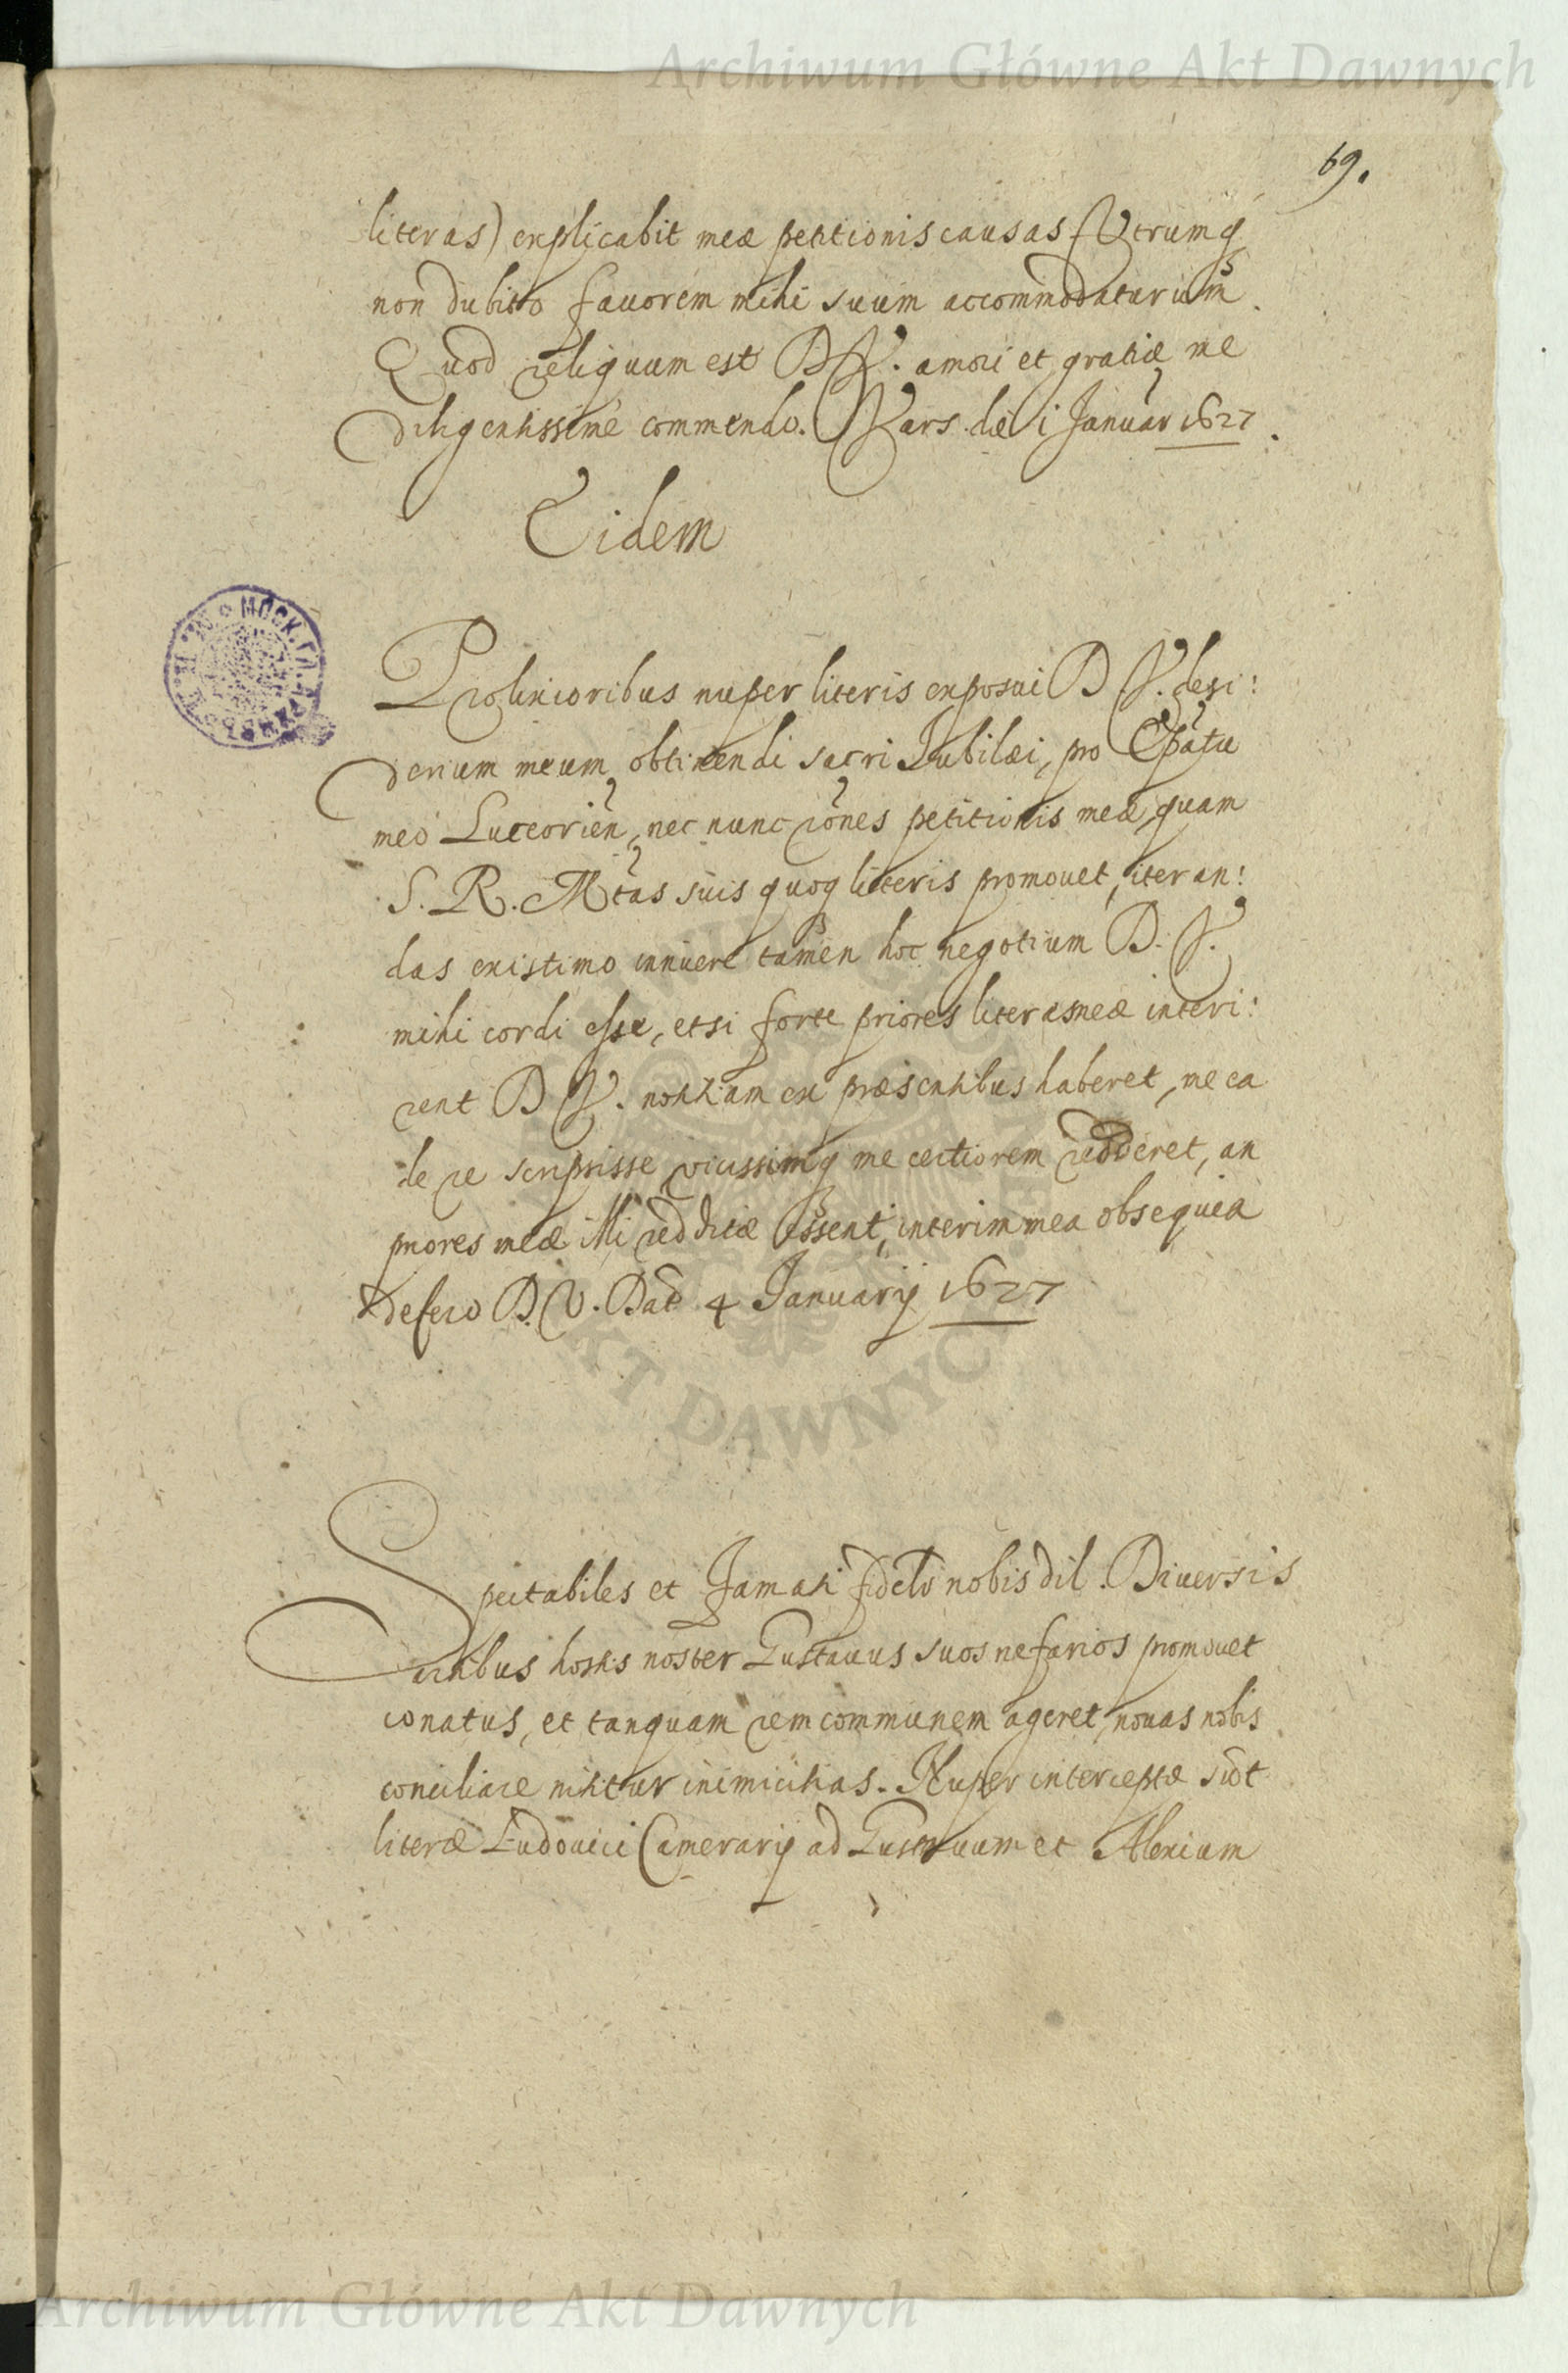 Archiwum Główne Akt Dawnych
69.
literas) explicabit meæ petitionis causas Utrumq
non dubito fauorem mihi suum accommodaturum.
Quod reliquum est D V. amori et gratiæ me
diligentissime commendo. Vars. die 1 Januar 1627.
Eidem
Prolixioribus nuper literis exposui D V. desi:
derium meum obtinendi sacri Jubilæi, pro Epatu
meo Luceorien, nec nunc rones petitionis meæ, quam
S. R. Mtas suis quoq literis promouet, iteran:
das existimo innuere tamen hoc negotium D. V.
mihi cordi esse, et si forte priores literæ meæ interi:
rent D V. notitiam ex præsentibus haberet, me ea
de re scripsisse vicissimq me certiorem redderet, an
priores meæ illi redditæ essent, interim mea obsequia
defero D. V. Dat 4 Januarij 1627
Spectabiles et Famati fideles nobis dil. Diuersis
artibus hostis noster Gustauus suos nefarios promouet
conatus, et tanquam rem communem ageret, nouas nobis
conciliare nititur inimicitias. Nuper interceptæ sut
literæ Ludouici Camerarij ad Gustauum et Alexium
AKT DAWNYCH
Archiwum Główne Akt Dawnych